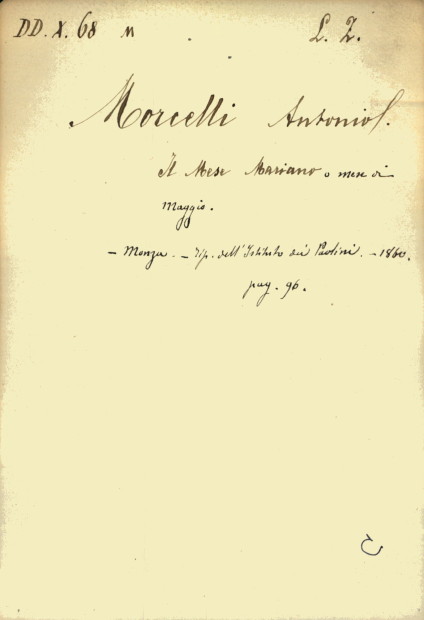 DD. X. 68 n L. Z.
Morcelli Antonio S.
Il Mese Mariano o mese di
Maggio.
- Monza. - Tip. dell' Istituto dei Paolini. - 1860.
pag. 96.